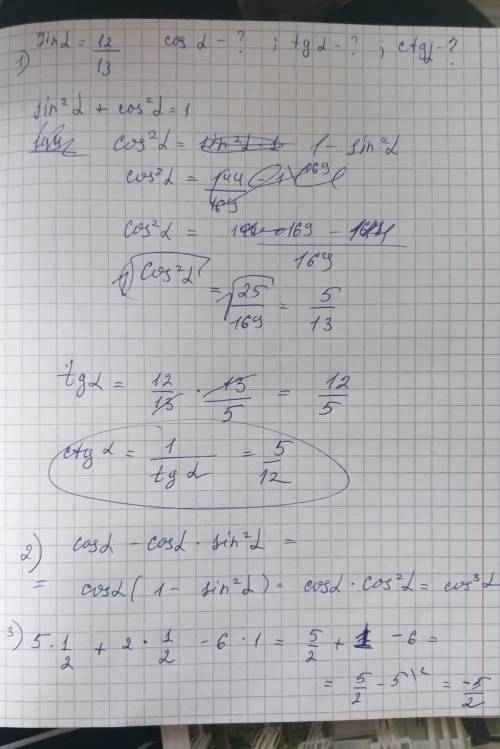 1) sin α = 12/13   cos α - ? ; tg α - ? ; ctg α - ?
sin²α + cos²α = 1
cos²α = 1 - sin²α
cos²α = 144/169
cos²α = 169 - 144 / 169
√cos²α = √25/169 = 5/13
tg α = 12/13 · 13/5 = 12/5
ctg α = 1/tg α = 5/12
2) cos α - cos α · sin²α =
= cos α ( 1 - sin²α ) = cos α · cos²α = cos³α
3) 5 · 1/2 + 2 · 1/2 - 6 · 1 = 5/2 + 1 - 6 =
= 5/2 - 5\² = -5/2